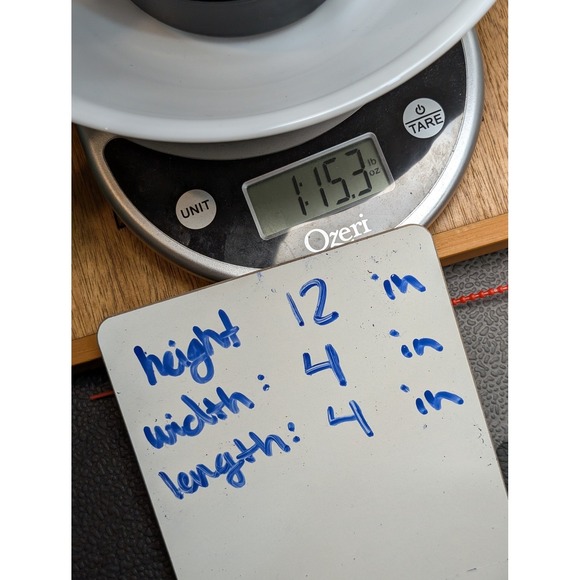 TARE
UNIT
1:15.3 lb oz
Ozeri
height 12 in
width: 4 in
length: 4 in